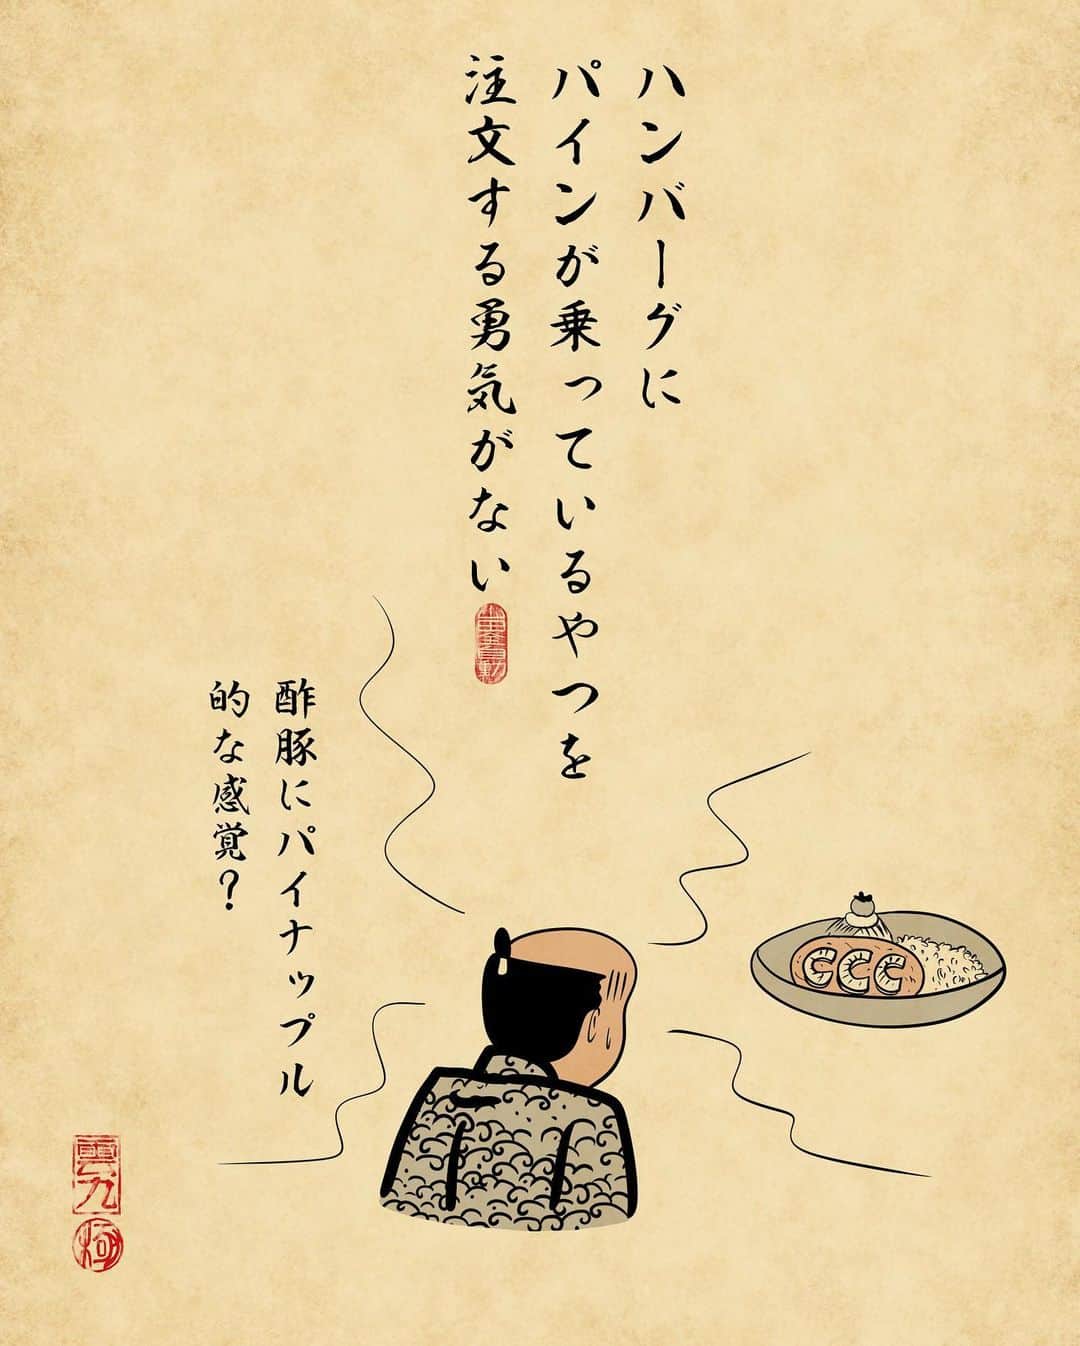 ハンバーグに
パインが乗っているやつを
注文する勇気がない
酢豚にパイナップル
的な感覚?